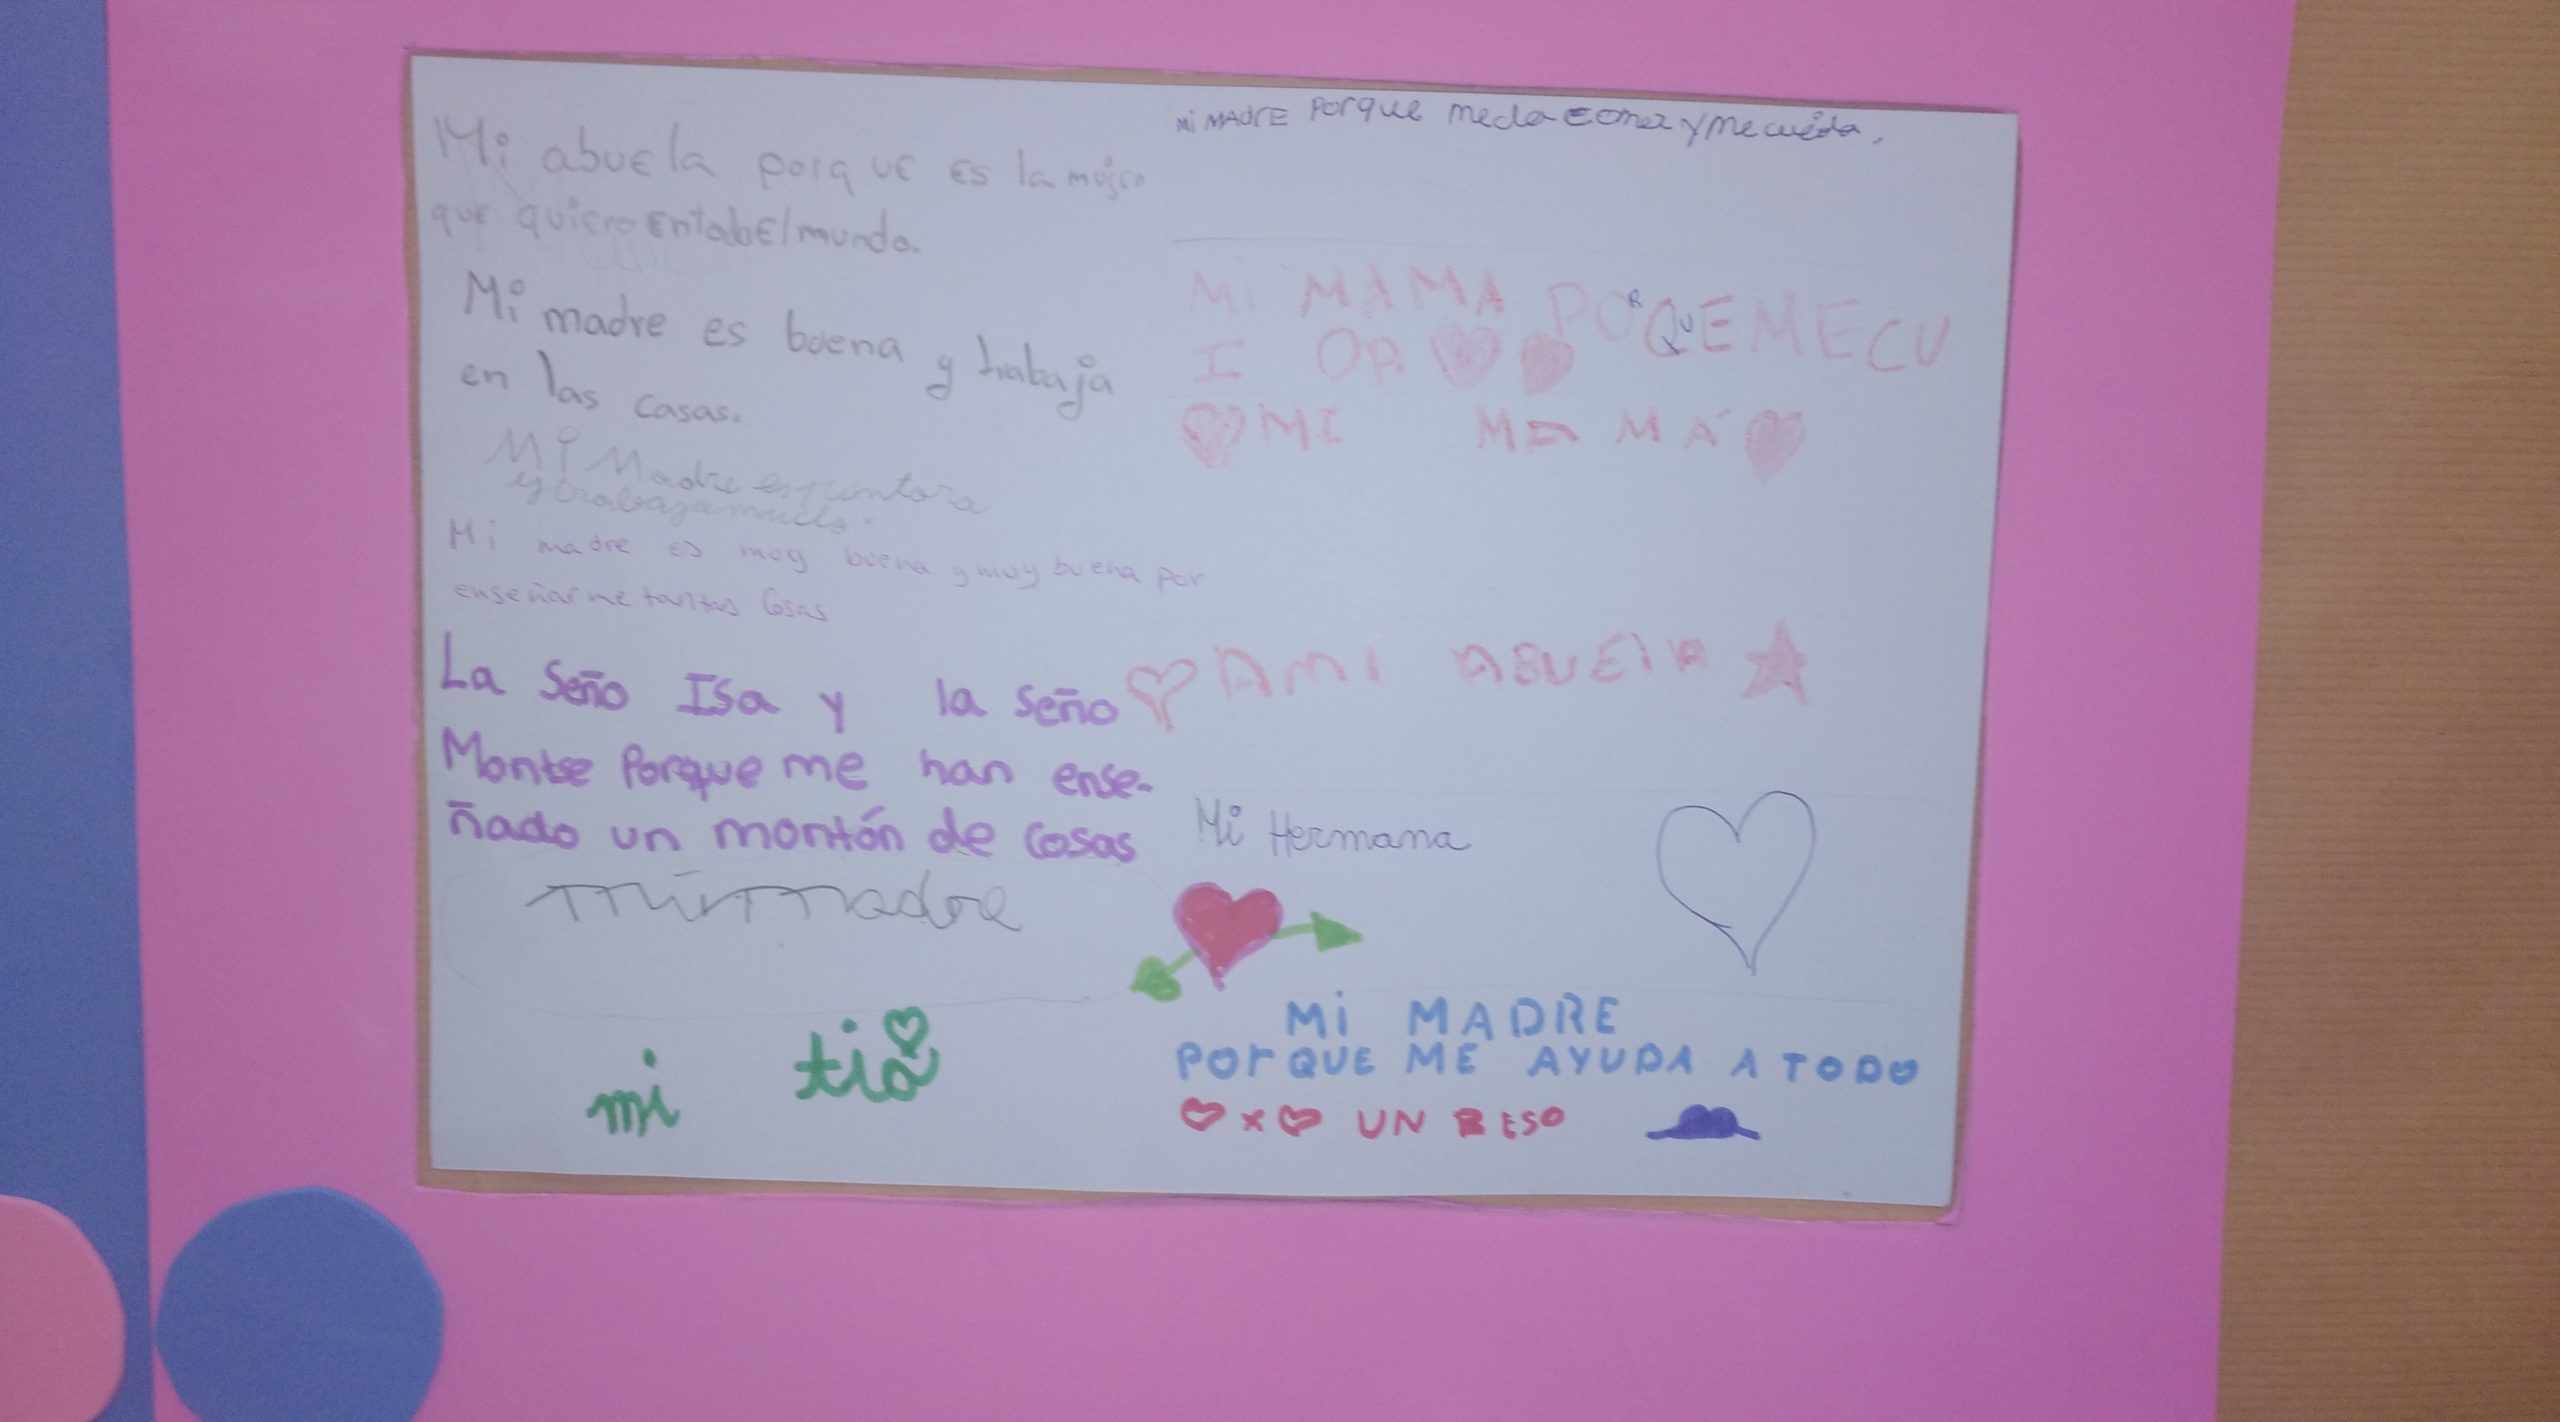 Mi abuela porque es la mujer
que quiero en tabel mundo.
Mi madre es buena y trabaja
en las casas.
Mi Madre es pintora
y trabaja mucho.
Mi madre es muy buena y muy buena por
enseñarme tantas cosas
La Seño Isa y la Seño
Montse Porque me han ense-
ñado un montón de cosas
mi madre
mi tia
Mi MAdrE Porque me da comer y me cuida.
Mi MAMA PORQUE ME CU
I DA
MI MAMÁ
A MI ABUElA
Mi Hermana
Mi MADRE
PorQUE ME AYUDA A TODO
x UN BESO